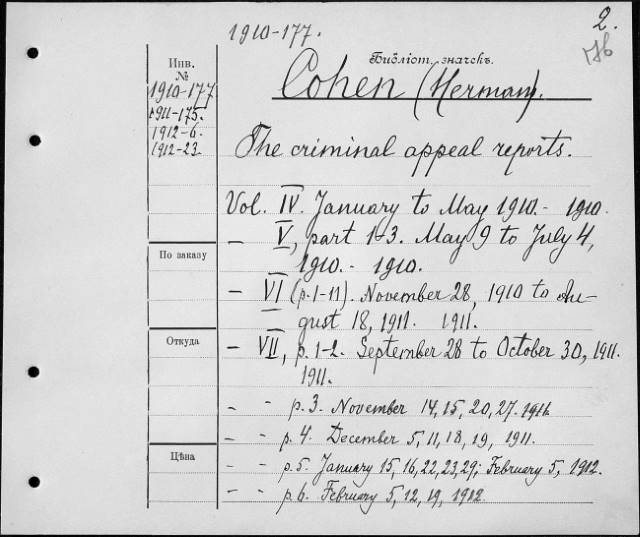 2.
1910-177.
Инв.
№
Библіот. значекъ.
1910-177
1911-175.
1912-6.
1912-23.
Cohen (Herman).
The criminal appeal reports.
Vol. IV. January to May 1910. - 1910.
– V, part 1-3. May 9 to July 4,
1910. - 1910.
По заказу
– VI (p. 1-11). November 28, 1910 to Au-
gust 18, 1911. 1911.
Откуда
– VII, p. 1-2. September 28 to October 30, 1911.
1911.
– – p. 3. November 14, 15, 20, 27. 1911.
– – p. 4. December 5, 11, 18, 19, 1911.
Цѣна
– – p. 5. January 15, 16, 22, 23, 29; February 5, 1912.
– – p. 6. February 5, 12, 19, 1912